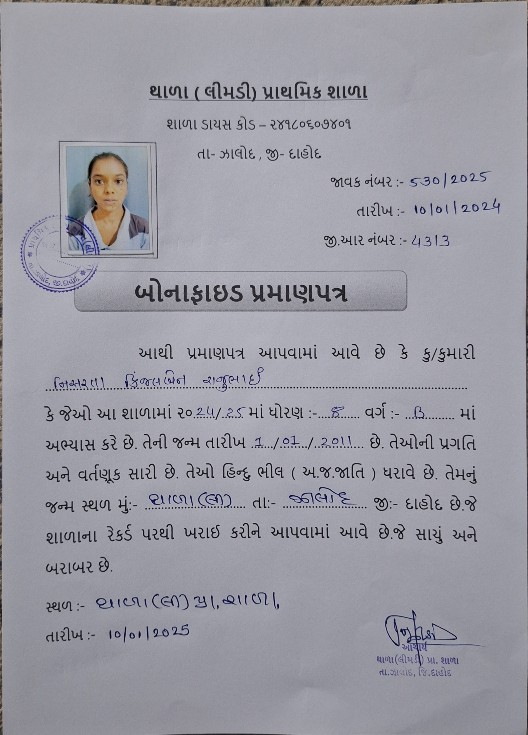 થાળા ( લીમડી) પ્રાથમિક શાળા
શાળા ડાયસ કોડ – ૨૪૧૮૦૬૦૭૪૦૧
તા- ઝાલોદ , જી- દાહોદ
જાવક નંબર :- 530/2025
તારીખ :- 10/01/2024
જી.આર નંબર :- 4313
બોનાફાઇડ પ્રમાણપત્ર
આથી પ્રમાણપત્ર આપવામાં આવે છે કે કુ/કુમારી
નિસરતા કિંજલબેન રાજુભાઈ
કે જેઓ આ શાળામાં ૨૦.24/25 માં ધોરણ :- 8 વર્ગ :- B માં
અભ્યાસ કરે છે. તેની જન્મ તારીખ 1/01/2011 છે. તેઓની પ્રગતિ
અને વર્તણૂક સારી છે. તેઓ હિન્દુ ભીલ ( અ.જ.જાતિ ) ધરાવે છે. તેમનું
જન્મ સ્થળ મું:- થાળા(લી) તા:- ઝાલોદ જી:- દાહોદ છે.જે
શાળાના રેકર્ડ પરથી ખરાઈ કરીને આપવામાં આવે છે.જે સાચું અને
બરાબર છે.
સ્થળ :- થાળા(લી) પ્રા. શાળા.
તારીખ :- 10/01/2025
આચાર્ય
થાળા(લીમડી) પ્રા. શાળા
તા.ઝાલોદ, જિ.દાહોદ